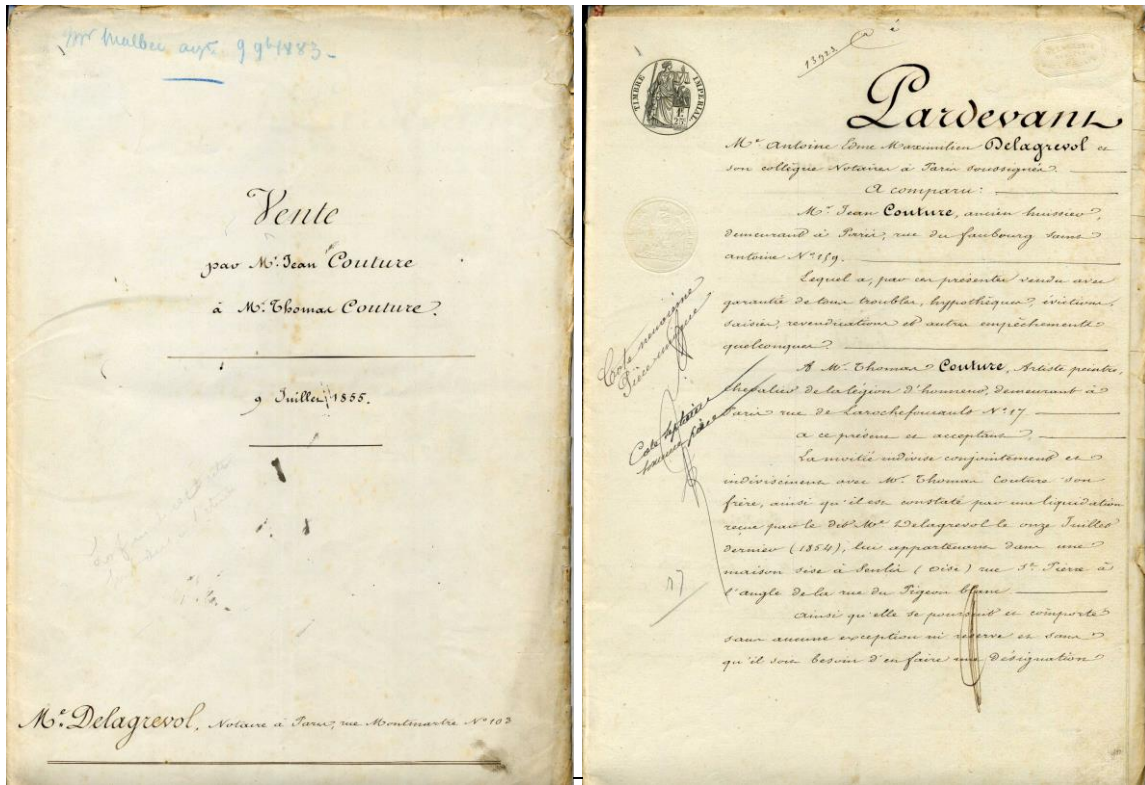 Mr Malbec 9 9b 1883 -
Vente
par Mr. Jean Couture
à Mr. Thomas Couture.
9 Juillet 1855.
Me. Delagrevol, Notaire à Paris, rue Montmartre No 103
13922
TIMBRE IMPERIAL
Pardevant
Me Antoine Edme Maximilien Delagrevol et
son collègue Notaires à Paris soussignés.
A comparu :
Mr. Jean Couture, ancien huissier,
demeurant à Paris, rue du faubourg saint
antoine No 159.
Lequel a, par ces présentes vendu avec
garantie de tous troubles, hypothèques, évictions,
saisies, revendications et autres empêchements
quelconques.
A Mr. Thomas Couture, Artiste peintre,
chevalier de la légion d'honneur, demeurant à
Paris rue de Larochefoucauld No 17
a ce présent et acceptant.
La moitié indivise conjointement et
indivisément avec Mr. Thomas Couture son
frère, ainsi qu'il est constaté par une liquidation
reçue par le dit Me Delagrevol le onze Juillet
dernier (1854), lui appartenant dans une
maison sise à Senlis (Oise) rue St. Pierre à
l'angle de la rue du Pigeon blanc.
Ainsi qu'elle se poursuit et comporte
sans aucune exception ni réserve et sans
qu'il soit besoin d'en faire une désignation
Cote neuvième
Pièce unique
Cote septième
pièce
27